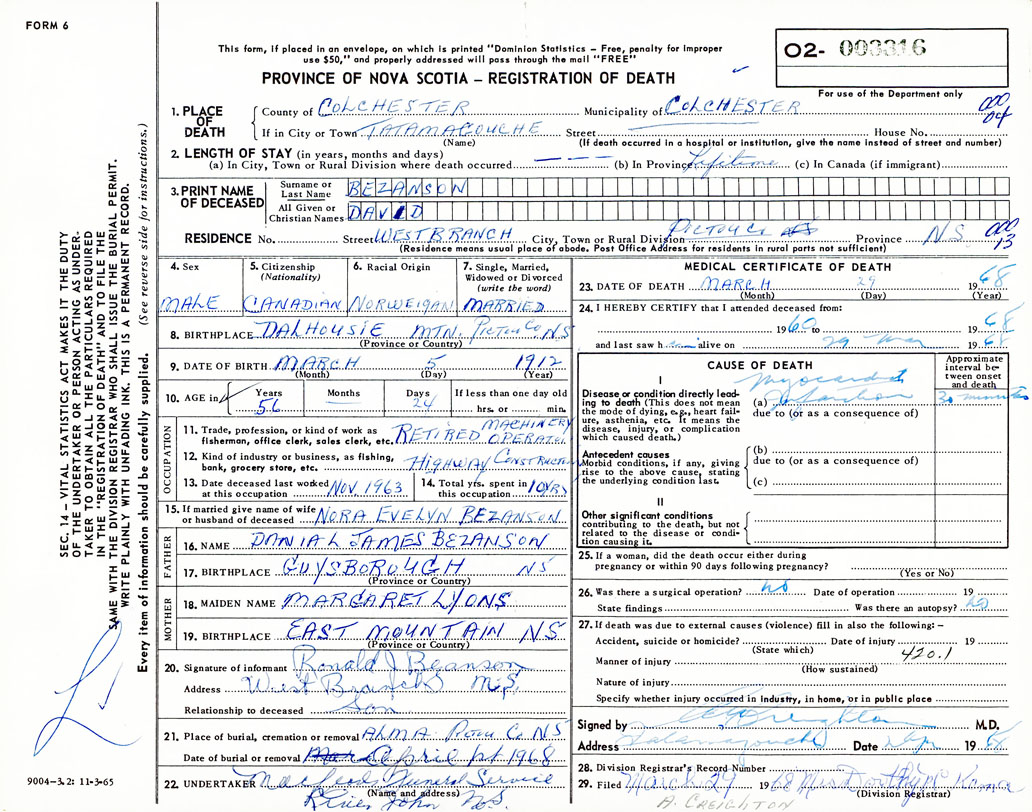 FORM 6
This form, if placed in an envelope, on which is printed "Dominion Statistics – Free, penalty for improper
use $50," and properly addressed will pass through the mail "FREE"
PROVINCE OF NOVA SCOTIA – REGISTRATION OF DEATH
02- 003316
For use of the Department only
1. PLACE OF DEATH
County of COLCHESTER Municipality of COLCHESTER
If in City or Town TATAMAGOUCHE Street House No.
(Name) (If death occurred in a hospital or institution, give the name instead of street and number)
000
04
2. LENGTH OF STAY (in years, months and days)
(a) In City, Town or Rural Division where death occurred — — — (b) In Province Lifetime (c) In Canada (if immigrant)
3. PRINT NAME OF DECEASED
Surname or Last Name BEZANSON
All Given or Christian Names DAVID
RESIDENCE No. Street WEST BRANCH City, Town or Rural Division PICTOU Co NS Province NS
(Residence means usual place of abode. Post Office Address for residents in rural parts not sufficient)
000
13
4. Sex
MALE
5. Citizenship
(Nationality)
CANADIAN
6. Racial Origin
NORWEIGAN
7. Single, Married,
Widowed or Divorced
(write the word)
MARRIED
8. BIRTHPLACE DALHOUSIE MTN. PICTOU Co NS
(Province or Country)
9. DATE OF BIRTH MARCH 5 1912
(Month) (Day) (Year)
10. AGE in Years Months Days If less than one day old
56 24 hrs. or min.
OCCUPATION
11. Trade, profession, or kind of work as
fisherman, office clerk, sales clerk, etc. RETIRED MACHINERY OPERATOR
12. Kind of industry or business, as fishing,
bank, grocery store, etc. HIGHWAY CONSTRUCTION
13. Date deceased last worked
at this occupation NOV. 1963
14. Total yrs. spent in
this occupation 10 YRS
15. If married give name of wife
or husband of deceased NORA EVELYN BEZANSON
FATHER
16. NAME DANIAL JAMES BEZANSON
17. BIRTHPLACE GUYSBOROUGH NS
(Province or Country)
MOTHER
18. MAIDEN NAME MARGARET LYONS
19. BIRTHPLACE EAST MOUNTAIN NS
(Province or Country)
20. Signature of informant Ronald J Beanson
Address West Branch N.S.
Relationship to deceased Son
21. Place of burial, cremation or removal ALMA PICTOU Co NS
Date of burial or removal April 1st 1968
22. UNDERTAKER MacLeod Funeral Service
(Name and address)
River John N.S.
MEDICAL CERTIFICATE OF DEATH
23. DATE OF DEATH MARCH 29 1968
(Month) (Day) (Year)
24. I HEREBY CERTIFY that I attended deceased from:
1960 to 1968
and last saw him alive on 29 Mar 1968
CAUSE OF DEATH
Approximate
interval be-
tween onset
and death
I
Disease or condition directly lead-
ing to death (This does not mean
the mode of dying, e.g., heart fail-
ure, asthenia, etc. It means the
disease, injury, or complication
which caused death.)
(a) Myocardial Infarction 30 minutes
due to (or as a consequence of)
Antecedent causes
Morbid conditions, if any, giving
rise to the above cause, stating
the underlying condition last.
(b)
due to (or as a consequence of)
(c)
II
Other significant conditions
contributing to the death, but not
related to the disease or condi-
tion causing it.
25. If a woman, did the death occur either during
pregnancy or within 90 days following pregnancy?
(Yes or No)
26. Was there a surgical operation? no Date of operation 19
State findings Was there an autopsy? no
27. If death was due to external causes (violence) fill in also the following: –
Accident, suicide or homicide? Date of injury 19
(State which) 420.1
Manner of injury
(How sustained)
Nature of injury
Specify whether injury occurred in industry, in home, or in public place
Signed by Creighton M.D.
Address Tatamagouche Date 19 68
28. Division Registrar's Record Number
29. Filed March 29 1968 Mrs Dorothy
(Division Registrar)
A. CREIGHTON
SEC. 14 – VITAL STATISTICS ACT MAKES IT THE DUTY
OF THE UNDERTAKER OR PERSON ACTING AS UNDER-
TAKER TO OBTAIN ALL THE PARTICULARS REQUIRED
IN THE "REGISTRATION OF DEATH" AND TO FILE THE
SAME WITH THE DIVISION REGISTRAR WHO SHALL ISSUE THE BURIAL PERMIT.
WRITE PLAINLY WITH UNFADING INK. THIS IS A PERMANENT RECORD.
Every item of information should be carefully supplied. (See reverse side for instructions.)
9004-3.2: 11-3-65